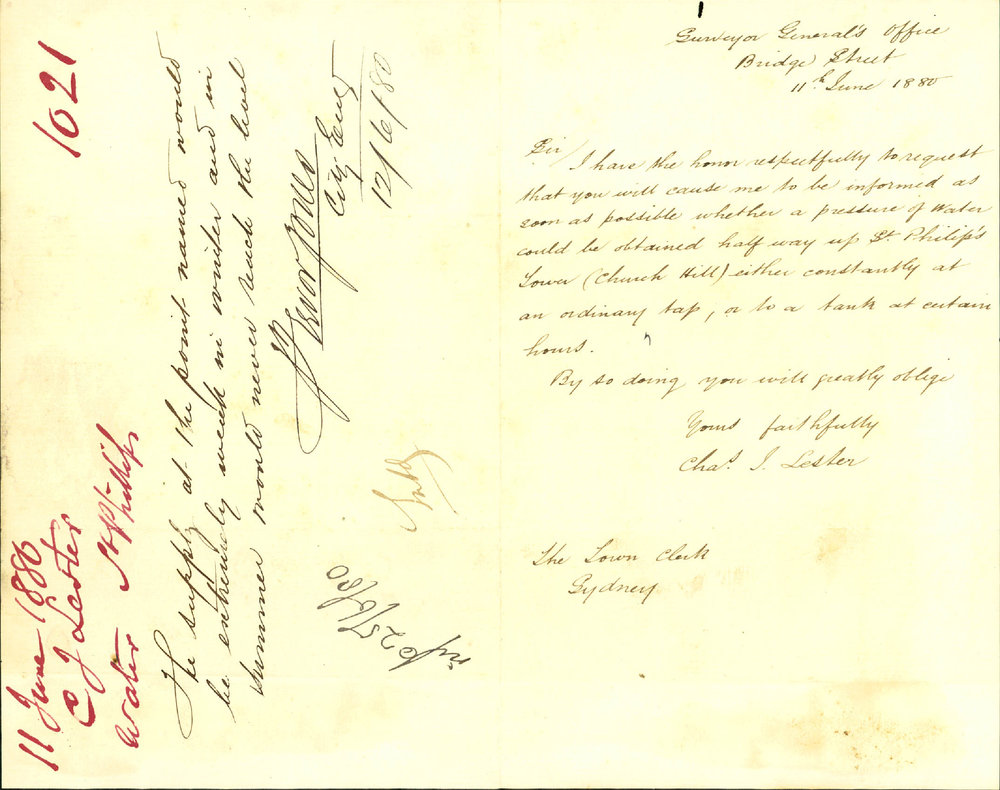 Surveyor General's Office
Bridge Street
11th June 1880
Sir
I have the honor respectfully to request
that you will cause me to be informed as
soon as possible whether a pressure of Water
could be obtained half way up St. Philip's
Tower (Church Hill) either constantly at
an ordinary tap, or to a tank at certain
hours.
By so doing you will greatly oblige
Yours faithfully
Chas. J. Lester
The Town Clerk
Sydney
1021
11 June 1880
C J Lester
Water St Phillips
The supply at the point named would
be extremely weak in winter and in
summer would never reach the level
Trevor Jones
City Eng
12/6/80
25/6/80